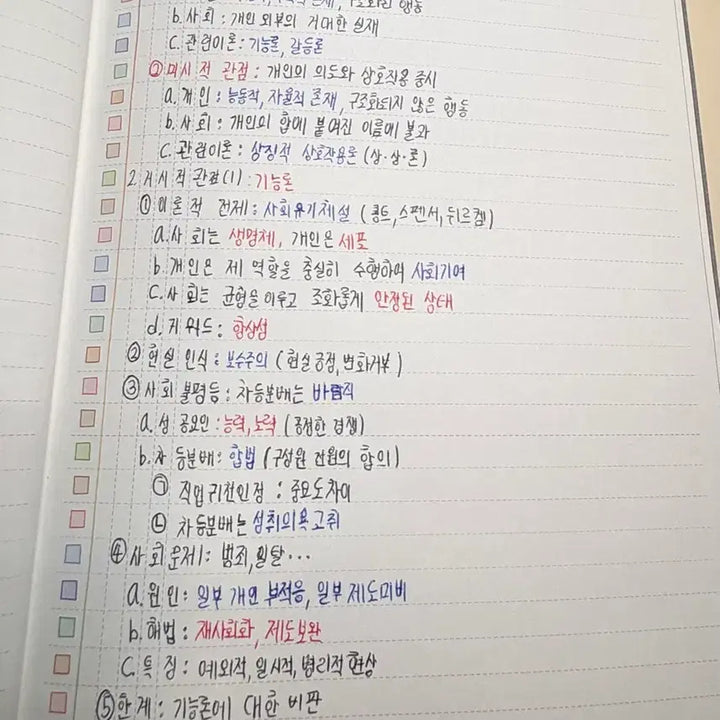 b. 사회 : 개인 외부의 거대한 실재
c. 관련이론 : 기능론, 갈등론
② 미시적 관점 : 개인의 의도와 상호작용 중시
a. 개인 : 능동적, 자율적 존재, 구조화되지 않은 행동
b. 사회 : 개인의 합에 붙여진 이름에 불과
c. 관련이론 : 상징적 상호작용론 (상·상·론)
2. 거시적 관점(1) : 기능론
① 이론적 전제 : 사회유기체설 (콩트, 스펜서, 뒤르켐)
a. 사회는 생명체, 개인은 세포
b. 개인은 제 역할을 충실히 수행하여 사회기여
c. 사회는 균형을 이루고 조화롭게 안정된 상태
d. 키워드 : 항상성
② 현실 인식 : 보수주의 (현실긍정, 변화거부)
③ 사회 불평등 : 차등분배는 바람직
a. 성공요인 : 능력, 노력 (공정한 경쟁)
b. 차등분배 : 합법 (구성원 전원의 합의)
㉠ 직업귀천인정 : 중요도차이
㉡ 차등분배는 성취의욕고취
④ 사회문제 : 범죄, 일탈 ...
a. 원인 : 일부 개인 부적응, 일부 제도미비
b. 해법 : 재사회화, 제도보완
c. 특징 : 예외적, 일시적, 병리적 현상
⑤ 한계 : 기능론에 대한 비판